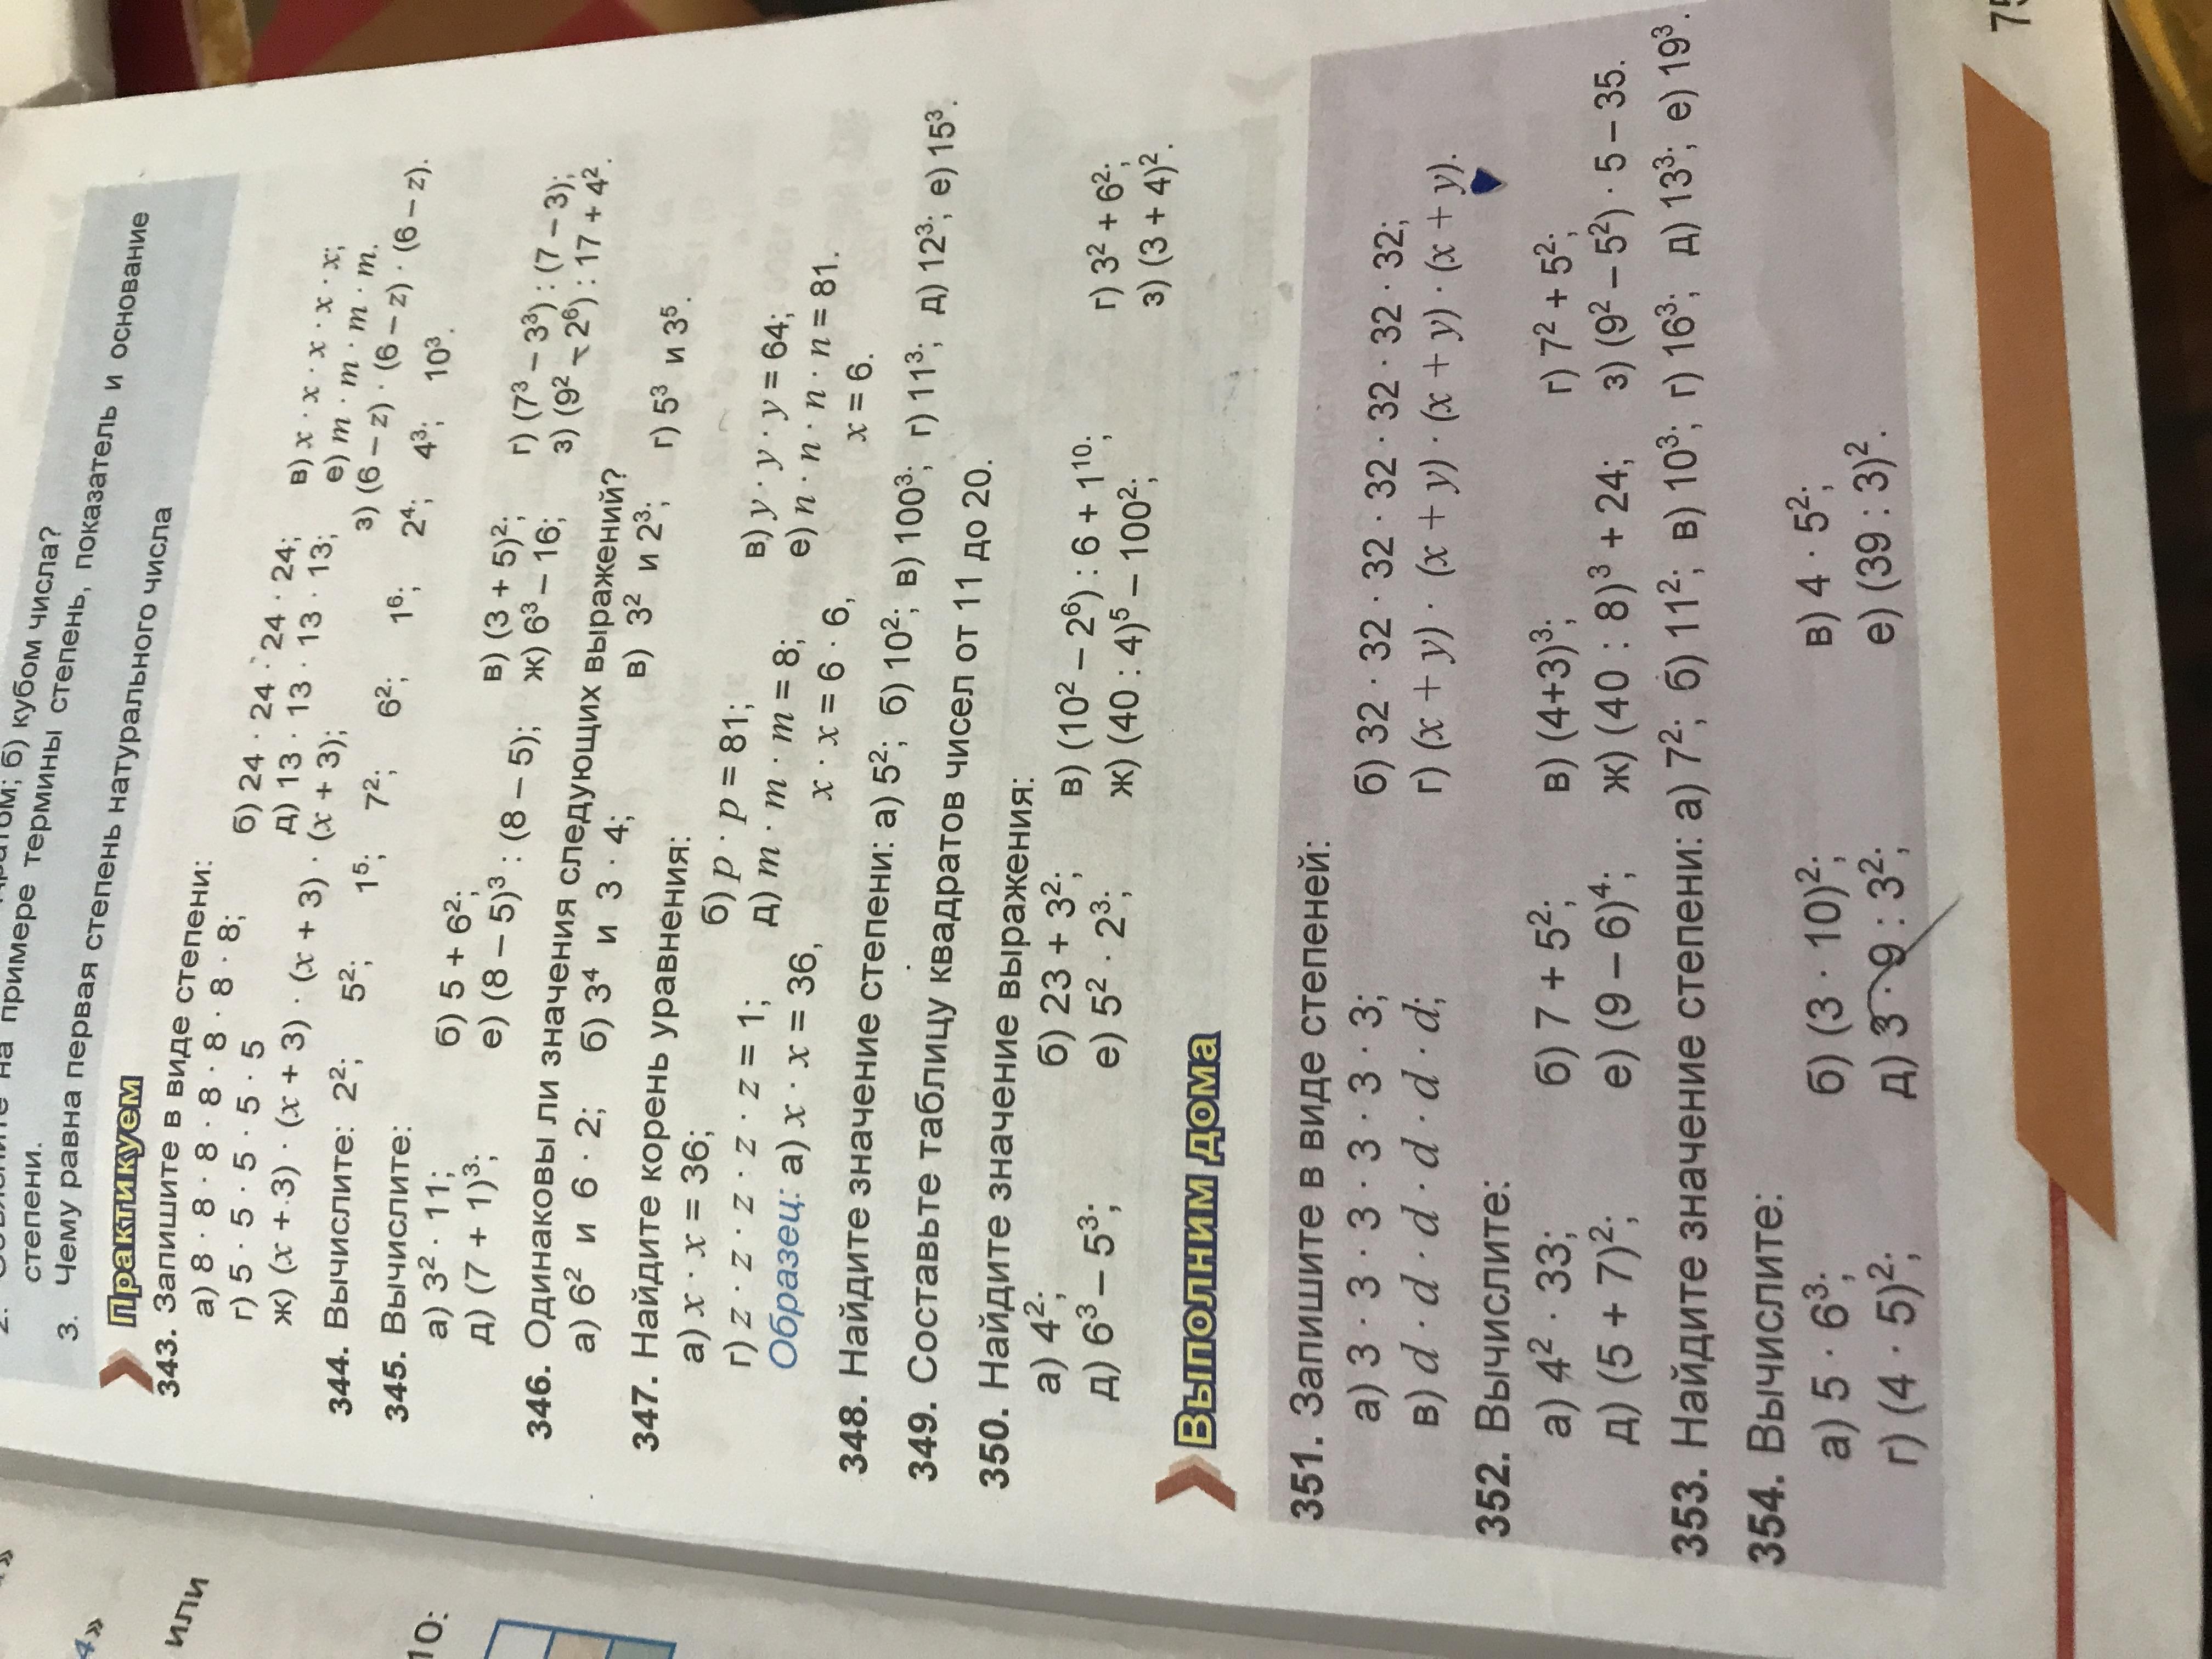 степени.
3. Чему равна первая степень натурального числа
на примере термины степень, показатель и основание
б) кубом числа?
Практикуем
343. Запишите в виде степени:
а) 8 · 8 · 8 · 8 · 8 · 8 · 8; б) 24 · 24 · 24 · 24; в) x · x · x · x · x;
г) 5 · 5 · 5 · 5 · 5 д) 13 · 13 · 13 · 13; е) m · m · m · m.
ж) (x + 3) · (x + 3) · (x + 3) · (x + 3); з) (6 – z) · (6 – z) · (6 – z).
344. Вычислите: 2²; 5²; 1⁵; 7²; 6²; 1⁶; 2⁴; 4³; 10³.
345. Вычислите:
а) 3² · 11; б) 5 + 6²; в) (3 + 5)²; г) (7³ – 3³) : (7 – 3);
д) (7 + 1)³; е) (8 – 5)³ : (8 – 5); ж) 6³ – 16; з) (9² – 2⁶) : 17 + 4².
346. Одинаковы ли значения следующих выражений?
а) 6² и 6 · 2; б) 3⁴ и 3 · 4; в) 3² и 2³; г) 5³ и 3⁵.
347. Найдите корень уравнения:
а) x · x = 36; б) p · p = 81; в) y · y · y = 64;
г) z · z · z · z · z = 1; д) m · m · m = 8; е) n · n · n · n = 81.
Образец: а) x · x = 36, x · x = 6 · 6, x = 6.
348. Найдите значение степени: а) 5²; б) 10²; в) 100³; г) 11³; д) 12³; е) 15³.
349. Составьте таблицу квадратов чисел от 11 до 20.
350. Найдите значение выражения:
а) 4²; б) 23 + 3²; в) (10² – 2⁶) : 6 + 1¹⁰; г) 3² + 6²;
д) 6³ – 5³; е) 5² · 2³; ж) (40 : 4)⁵ – 100²; з) (3 + 4)².
Выполним дома
351. Запишите в виде степеней:
а) 3 · 3 · 3 · 3 · 3 · 3 · 3; б) 32 · 32 · 32 · 32 · 32 · 32 · 32;
в) d · d · d · d · d · d; г) (x + y) · (x + y) · (x + y) · (x + y).
352. Вычислите:
а) 4² · 33; б) 7 + 5²; в) (4+3)³; г) 7² + 5²;
д) (5 + 7)²; е) (9 – 6)⁴; ж) (40 : 8)³ + 24; з) (9² – 5²) · 5 – 35.
353. Найдите значение степени: а) 7²; б) 11²; в) 10³; г) 16³; д) 13³; е) 19³.
354. Вычислите:
а) 5 · 6³; б) (3 · 10)²; в) 4 · 5²;
г) (4 · 5)²; д) 3 · 9 : 3²; е) (39 : 3)².
или
10: